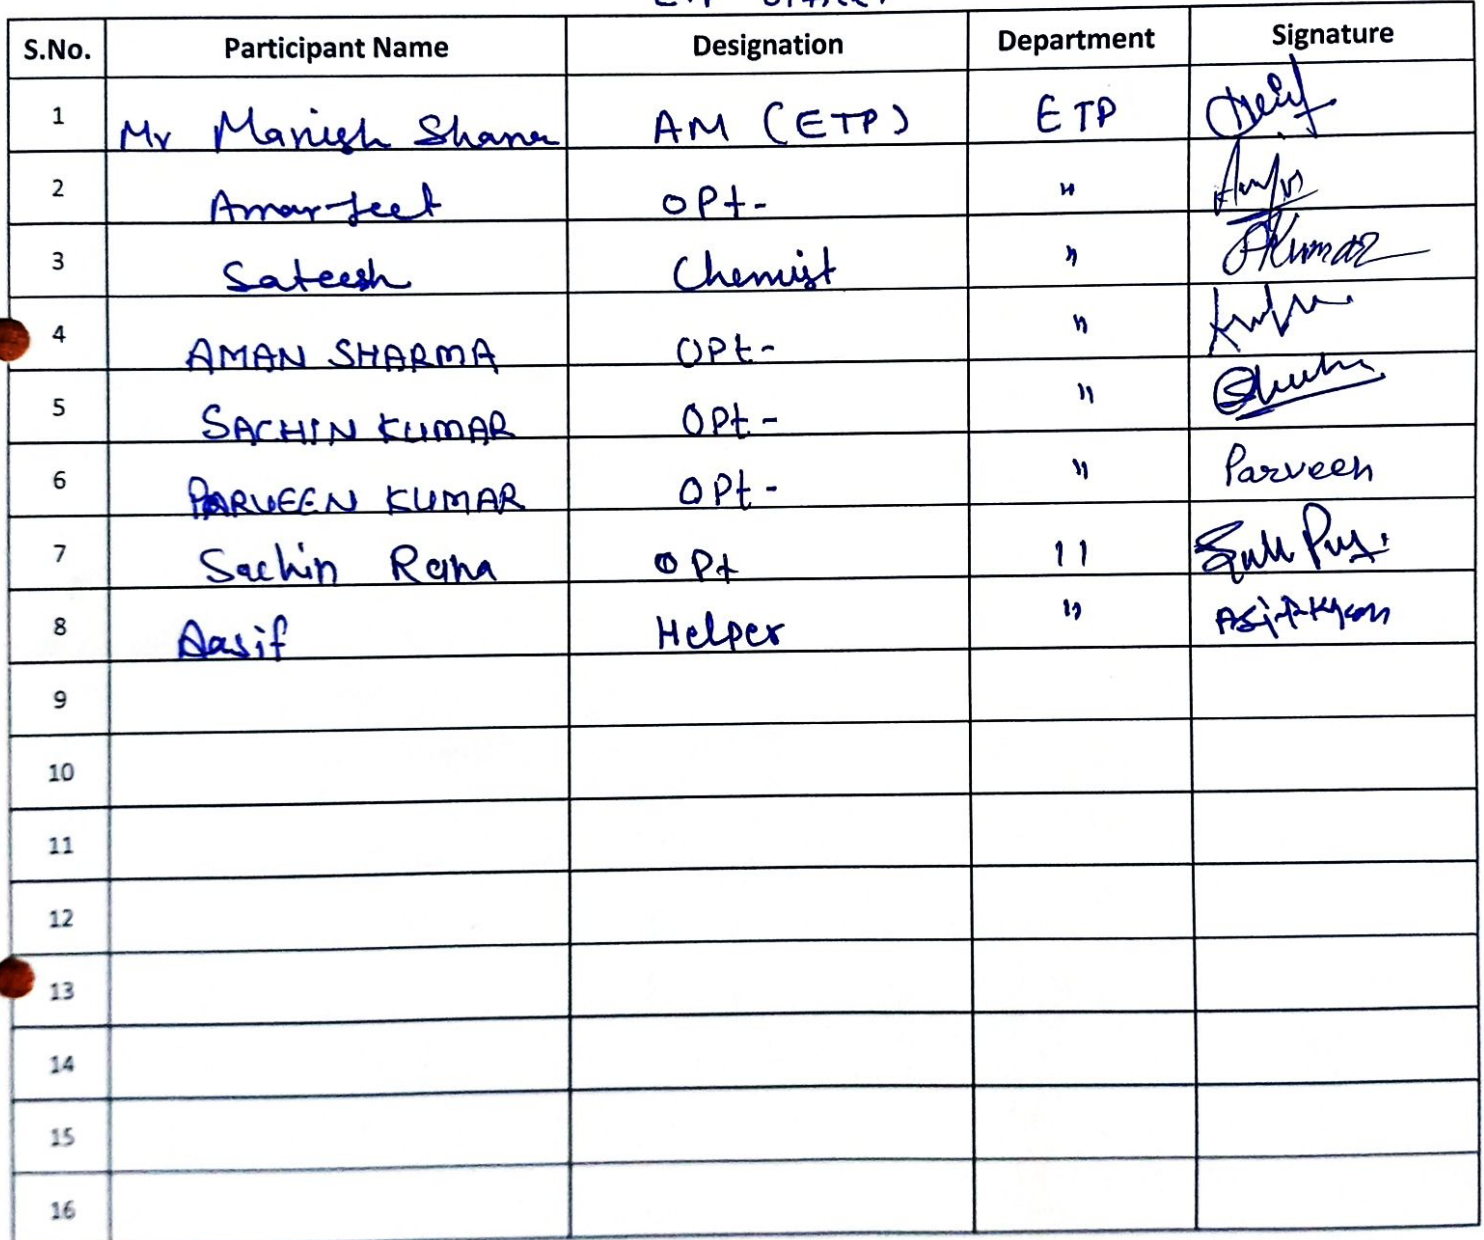 S.No. Participant Name Designation Department Signature
1 Mr Manish Sharma AM (ETP) ETP
2 Amarjeet OPt- "
3 Sateesh Chemist " Kumar
4 AMAN SHARMA OPt- "
5 SACHIN KUMAR OPt- "
6 PARVEEN KUMAR OPt- " Parveen
7 Sachin Rana OPt "
8 Aasif Helper "
9
10
11
12
13
14
15
16